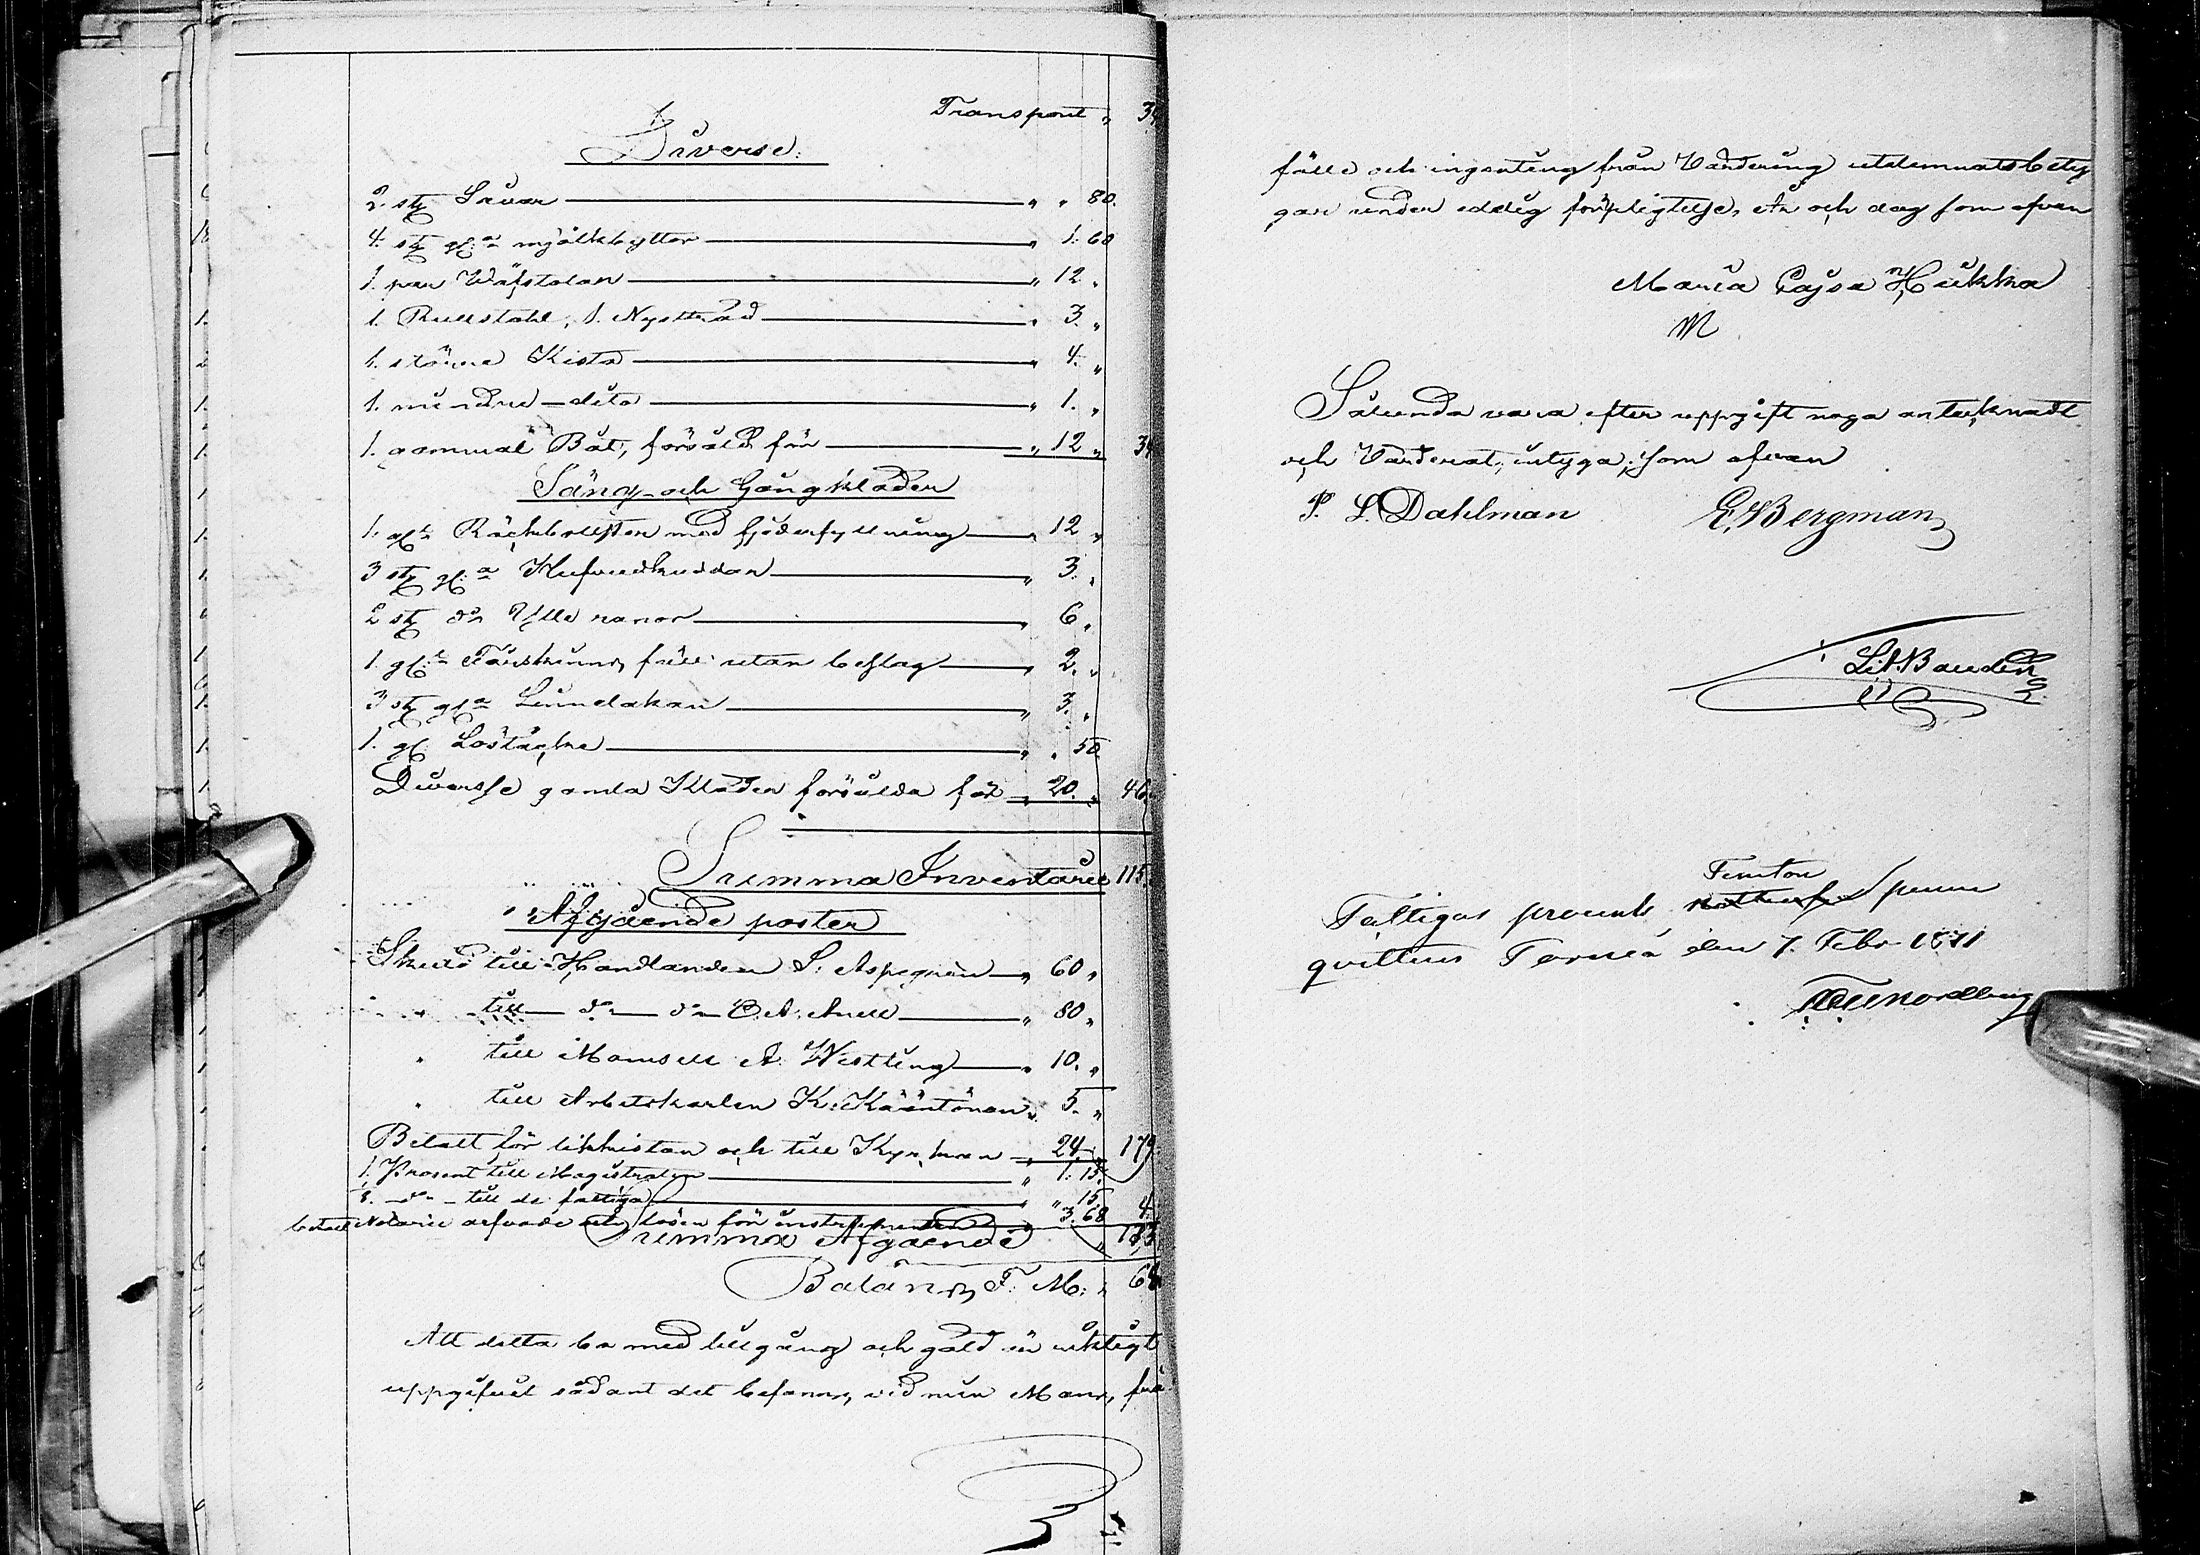 Transport " 34
Diverse:
2. st. Såar " " 80.
4. st. gl:a mjölkbyttor " 1: 60
1. par Wäfstolar " 12 "
1. Rullstohl, 1. Nystträd " 3. "
1. större Kista " 4. "
1. mindre dito " 1. "
1. gammal Båt, försåld för " 12 " 34
Säng- och Gångkläder
1. gl:t Räckbolster med fjäderfyllning " 12 "
3 st. gl:a Hufvudkuddar " 3. "
2 st. d:o Ylle ranor " 6 "
1. gl:t Fårskinns fäll utan beslag " 2. "
3 st. gl:a Linnelakan " 3. "
1. gl: Löstäcke " " 50
Diversse gamla Kläder försålda för " 20. " 46.
Summa Inventarie 115.
Afgående poster
Skuld till Handlanden S: Aspegren " 60 "
" till d:o d:o C. A. Anell " 80 "
" till Mamsell A. Westling " 10. "
" till Arbetskarlen K. Kääntönen " 5. "
Betalt för likkistan och till Kyrkan " 24 " 179.
1. Prosent till Magistraten " 1: 15.
1/8. d:o till de fattiga " " 15
betalt Notarie arfvode och lösen för instrumenten " 3. 68 4.
Summa Afgående " 183.
Balans, F. M: " 68
Att detta bo med tillgång och gäld är riktigt
uppgifvet sådant det befanns, vid min Mans, frå
fälle och ingenting från Värdering utelemnats bety
gar under edelig förpligtelse, År och dag som ofvan
Maria Cajsa Hukka
M
Sålunda vara efter uppgift noga antecknadt
och Värderat, intyga; som ofvan
P. L. Dahlman E. Bergman
L. A. Baudin
Femton
Fattigas procent penni
qvitteras Torneå den 7. Febr 1871
Nordberg